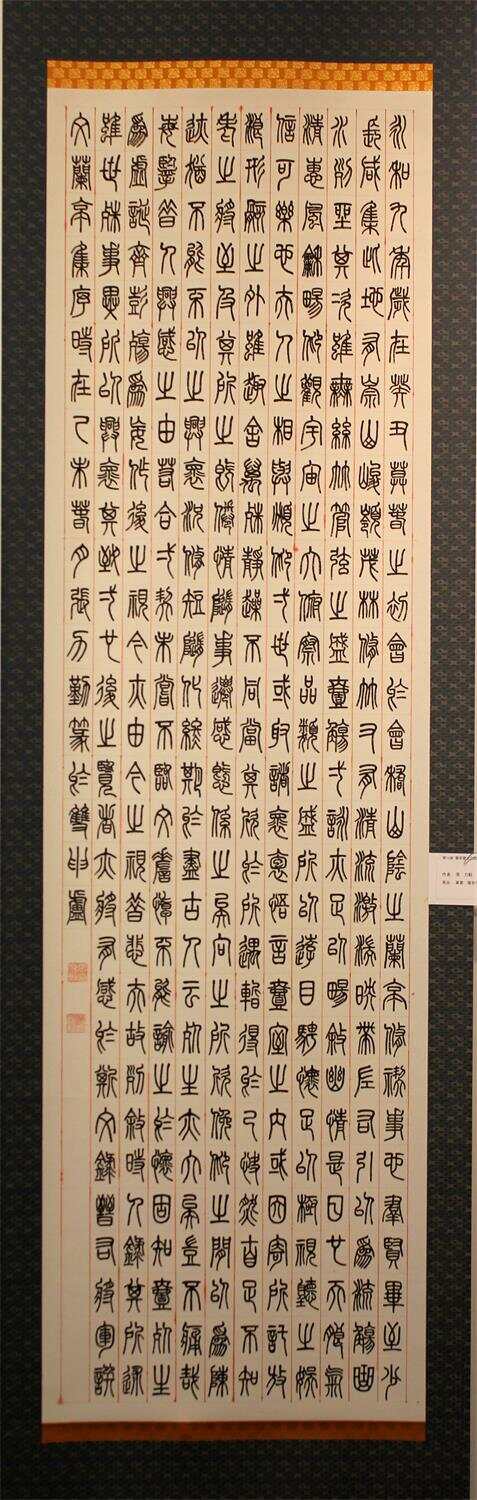 永和九年歲在癸丑莫春之初會於會稽山陰之蘭亭修禊事也群賢畢至少
長咸集此地有崇山峻領茂林修竹又有清流激湍映帶左右引以為流觴曲
水列坐其次雖無絲竹管弦之盛壹觴一詠亦足以暢敘幽情是日也天朗氣
清惠風龢暢仰觀宇宙之大俯察品類之盛所以遊目騁懷足以極視聽之娛
信可樂也夫人之相與俯仰一世或取諸懷抱悟言壹室之內或因寄所託放
浪形骸之外雖趣舍萬殊靜躁不同當其欣於所遇暫得於己快然自足不知
老之將至及其所之既倦情隨事遷感慨係之矣向之所欣俛仰之間以為陳
迹猶不能不以之興懷況修短隨化終期於盡古人云死生亦大矣豈不痛哉
每擥昔人興感之由若合一契未嘗不臨文嗟悼不能諭之於懷固知壹死生
為虛誕齊彭殤為妄作後之視今亦由今之視昔悲夫故列敘時人錄其所述
雖世殊事異所以興懷其致一也後之覽者亦將有感於斯文錄晉右將軍說
文蘭亭集序時在乙未春月張力勤篆於雙申廬